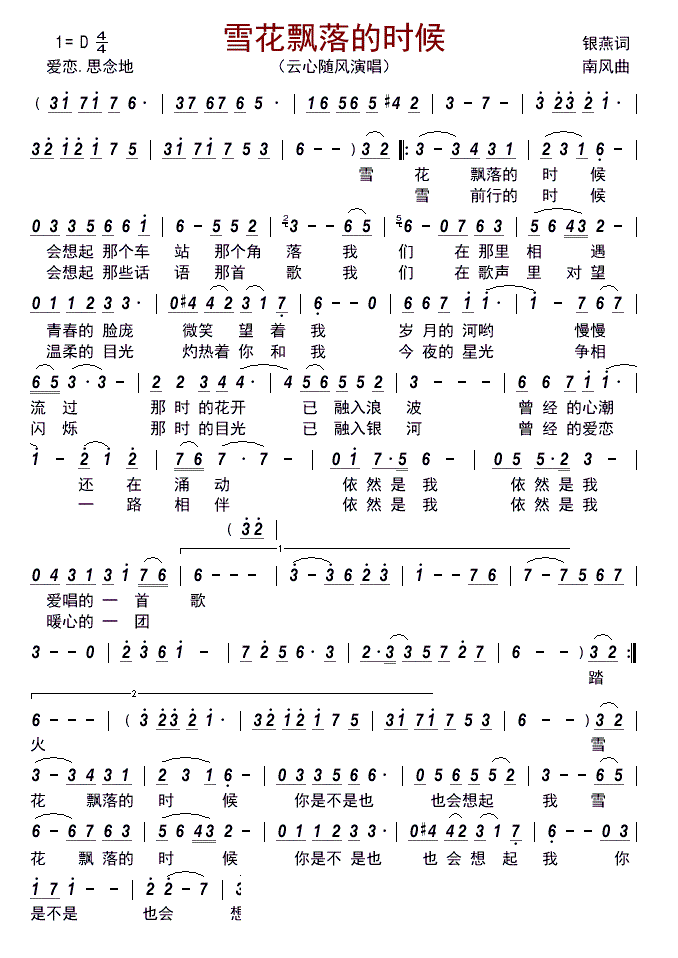 雪花飘落的时候
1= D 4/4
银燕词
爱恋.思念地
（云心随风演唱）
南风曲
( 3 1 7 1 7 6 · | 3 7 6 7 6 5 · | 1 6 5 6 5 #4 2 | 3 - 7 - | 3 2 3 2 1 ·
3 2 1 2 1 7 5 | 3 1 7 1 7 5 3 | 6 - - ) 3 2 |: 3 - 3 4 3 1 | 2 3 1 6 -
雪 花 飘落的 时 候
雪 前行的 时 候
0 3 3 5 6 6 1 | 6 - 5 5 2 | 2 3 - - 6 5 | 5 6 - 0 7 6 3 | 5 6 4 3 2 - |
会想起 那个车 站 那个角 落 我 们 在 那里 相 遇
会想起 那些话 语 那首 歌 我 们 在 歌声 里 对 望
0 1 1 2 3 3 - | 0 #4 4 2 3 1 7 | 6 - - 0 | 6 6 7 1 1 · | 1 - 7 6 7 |
青春的 脸庞 微笑 望 着 我 岁 月的 河哟 慢慢
温柔的 目光 灼热着 你 和 我 今 夜的 星光 争相
6 5 3 · 3 - | 2 2 3 4 4 · | 4 5 6 5 5 2 | 3 - - - | 6 6 7 1 1 |
流 过 那 时 的花开 已 融入浪 波 曾 经 的心潮
闪 烁 那 时 的目光 已 融入银 河 曾 经 的爱恋
1 - 2 1 2 | 7 6 7 · 7 - | 0 1 7 · 5 6 - | 0 5 5 · 2 3 - |
还 在 涌 动 依 然 是 我 依 然 是 我
一 路 相 伴 依 然 是 我 依 然 是 我
( 3 2 |
1
0 4 3 1 3 1 7 6 | 6 - - - | 3 - 3 6 2 3 | 1 - - 7 6 | 7 - 7 5 6 7 |
爱唱的 一 首 歌
暖心的 一 团
3 - - 0 | 2 3 6 1 - | 7 2 5 6 · 3 | 2 · 3 3 5 7 2 7 | 6 - - ) 3 2 :|
踏
2
6 - - - | ( 3 2 3 2 1 · | 3 2 1 2 1 7 5 | 3 1 7 1 7 5 3 | 6 - - ) 3 2 |
火 雪
3 - 3 4 3 1 | 2 3 1 6 - | 0 3 3 5 6 6 · | 0 5 6 5 5 2 | 3 - - 6 5 |
花 飘落的 时 候 你是不是也 也会想起 我 雪
6 - 6 7 6 3 | 5 6 4 3 2 - | 0 1 1 2 3 3 · | 0 #4 4 2 3 1 7 | 6 - - 0 3 |
花 飘 落的 时 候 你是不 是也 也 会 想 起 我 你
1 7 1 - - | 2 2 - 7 | 3
是不是 也会 想